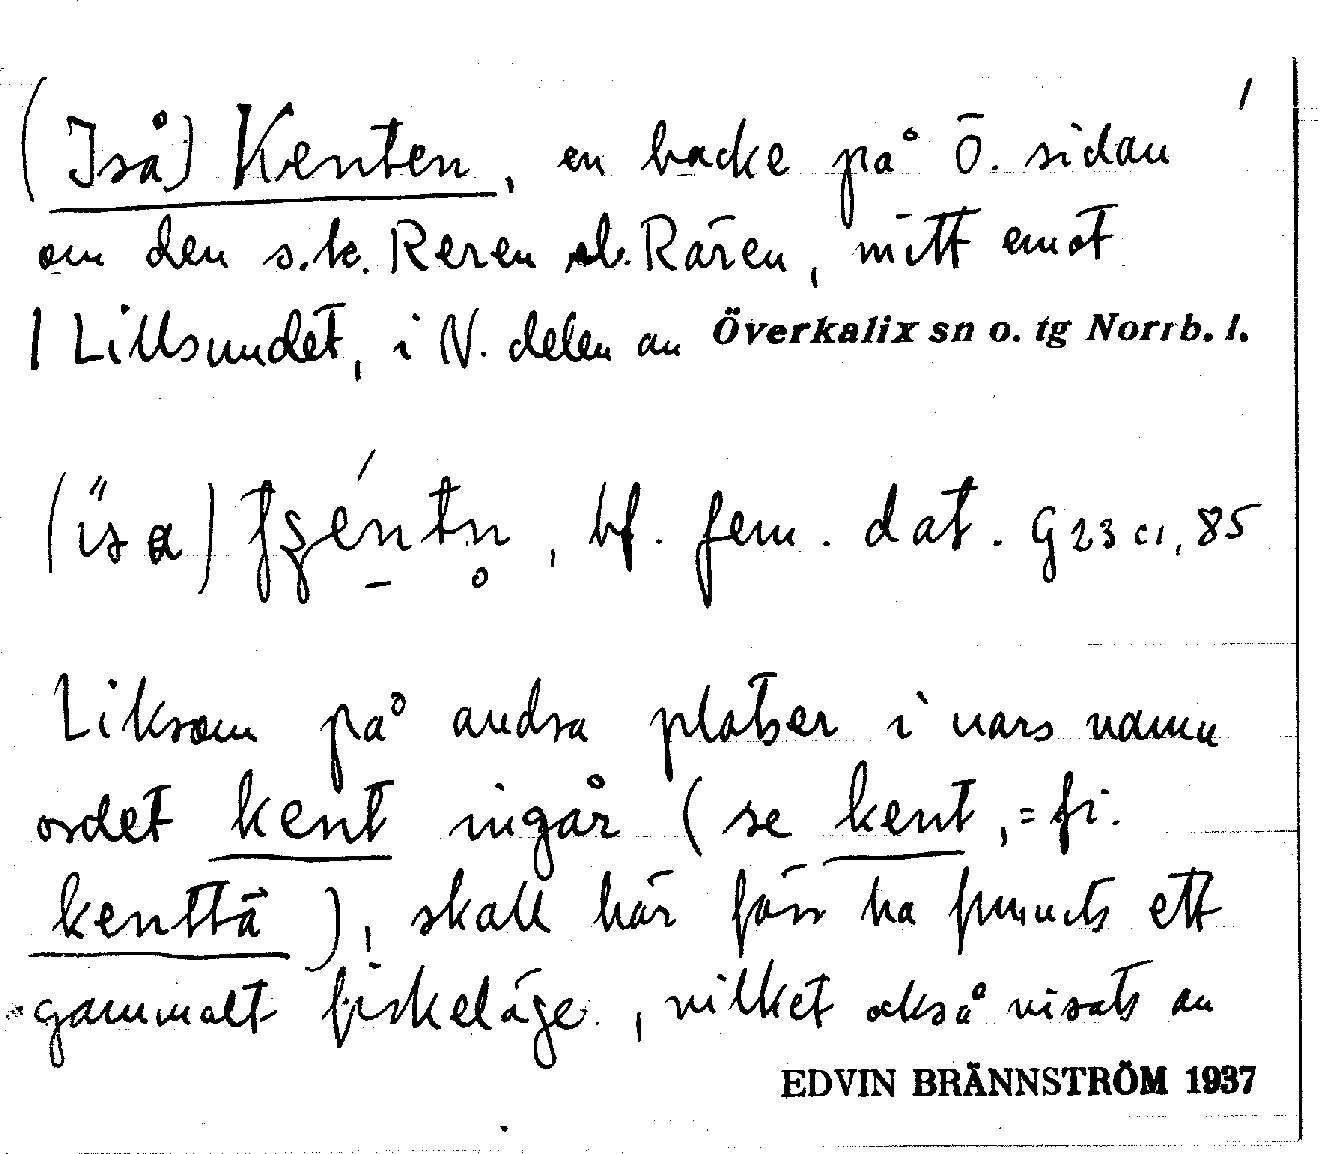 1
(Iså) Kenten, en backe på Ö. sidan
om den s.k. Reren el. Rären, mitt emot
| Lillsundet, i N. delen av Överkalix sn o. tg Norrb. l.
bf. fem. dat. G23 c1, 85
Liksom på andra platser i vars namn
ordet kent ingår (se kent, = fi.
kenttä), skall här förr ha funnits ett
gammalt fiskeläge, vilket också visats av
EDVIN BRÄNNSTRÖM 1937